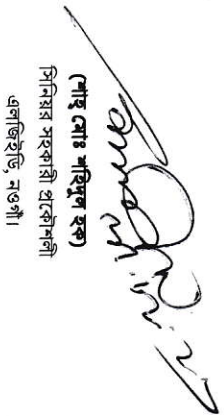 (শাহ মোঃ শহিদুল হক)
সিনিয়র সহকারী প্রকৌশলী
এলজিইডি, নওগাঁ।